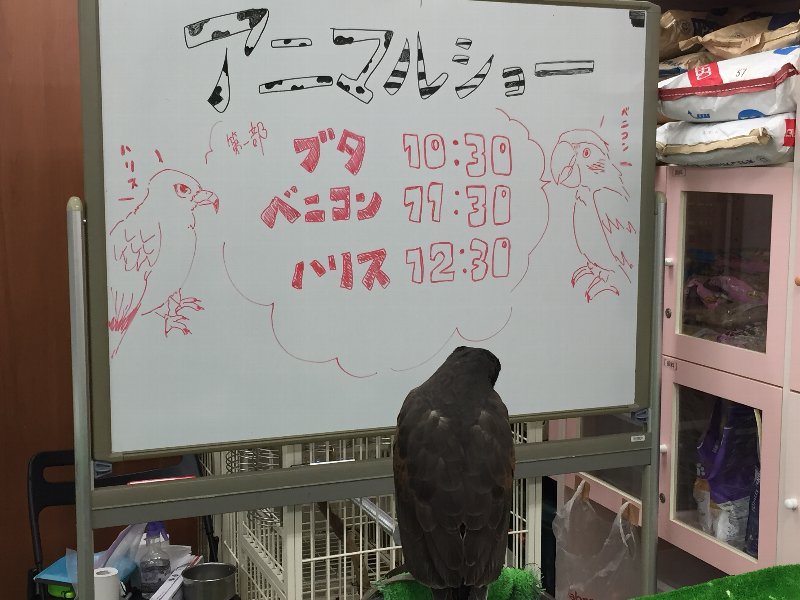 アニマルショー
第一部
ブタ 10:30
ベニコン 11:30
ハリス 12:30
ハリス
ベニコン
57